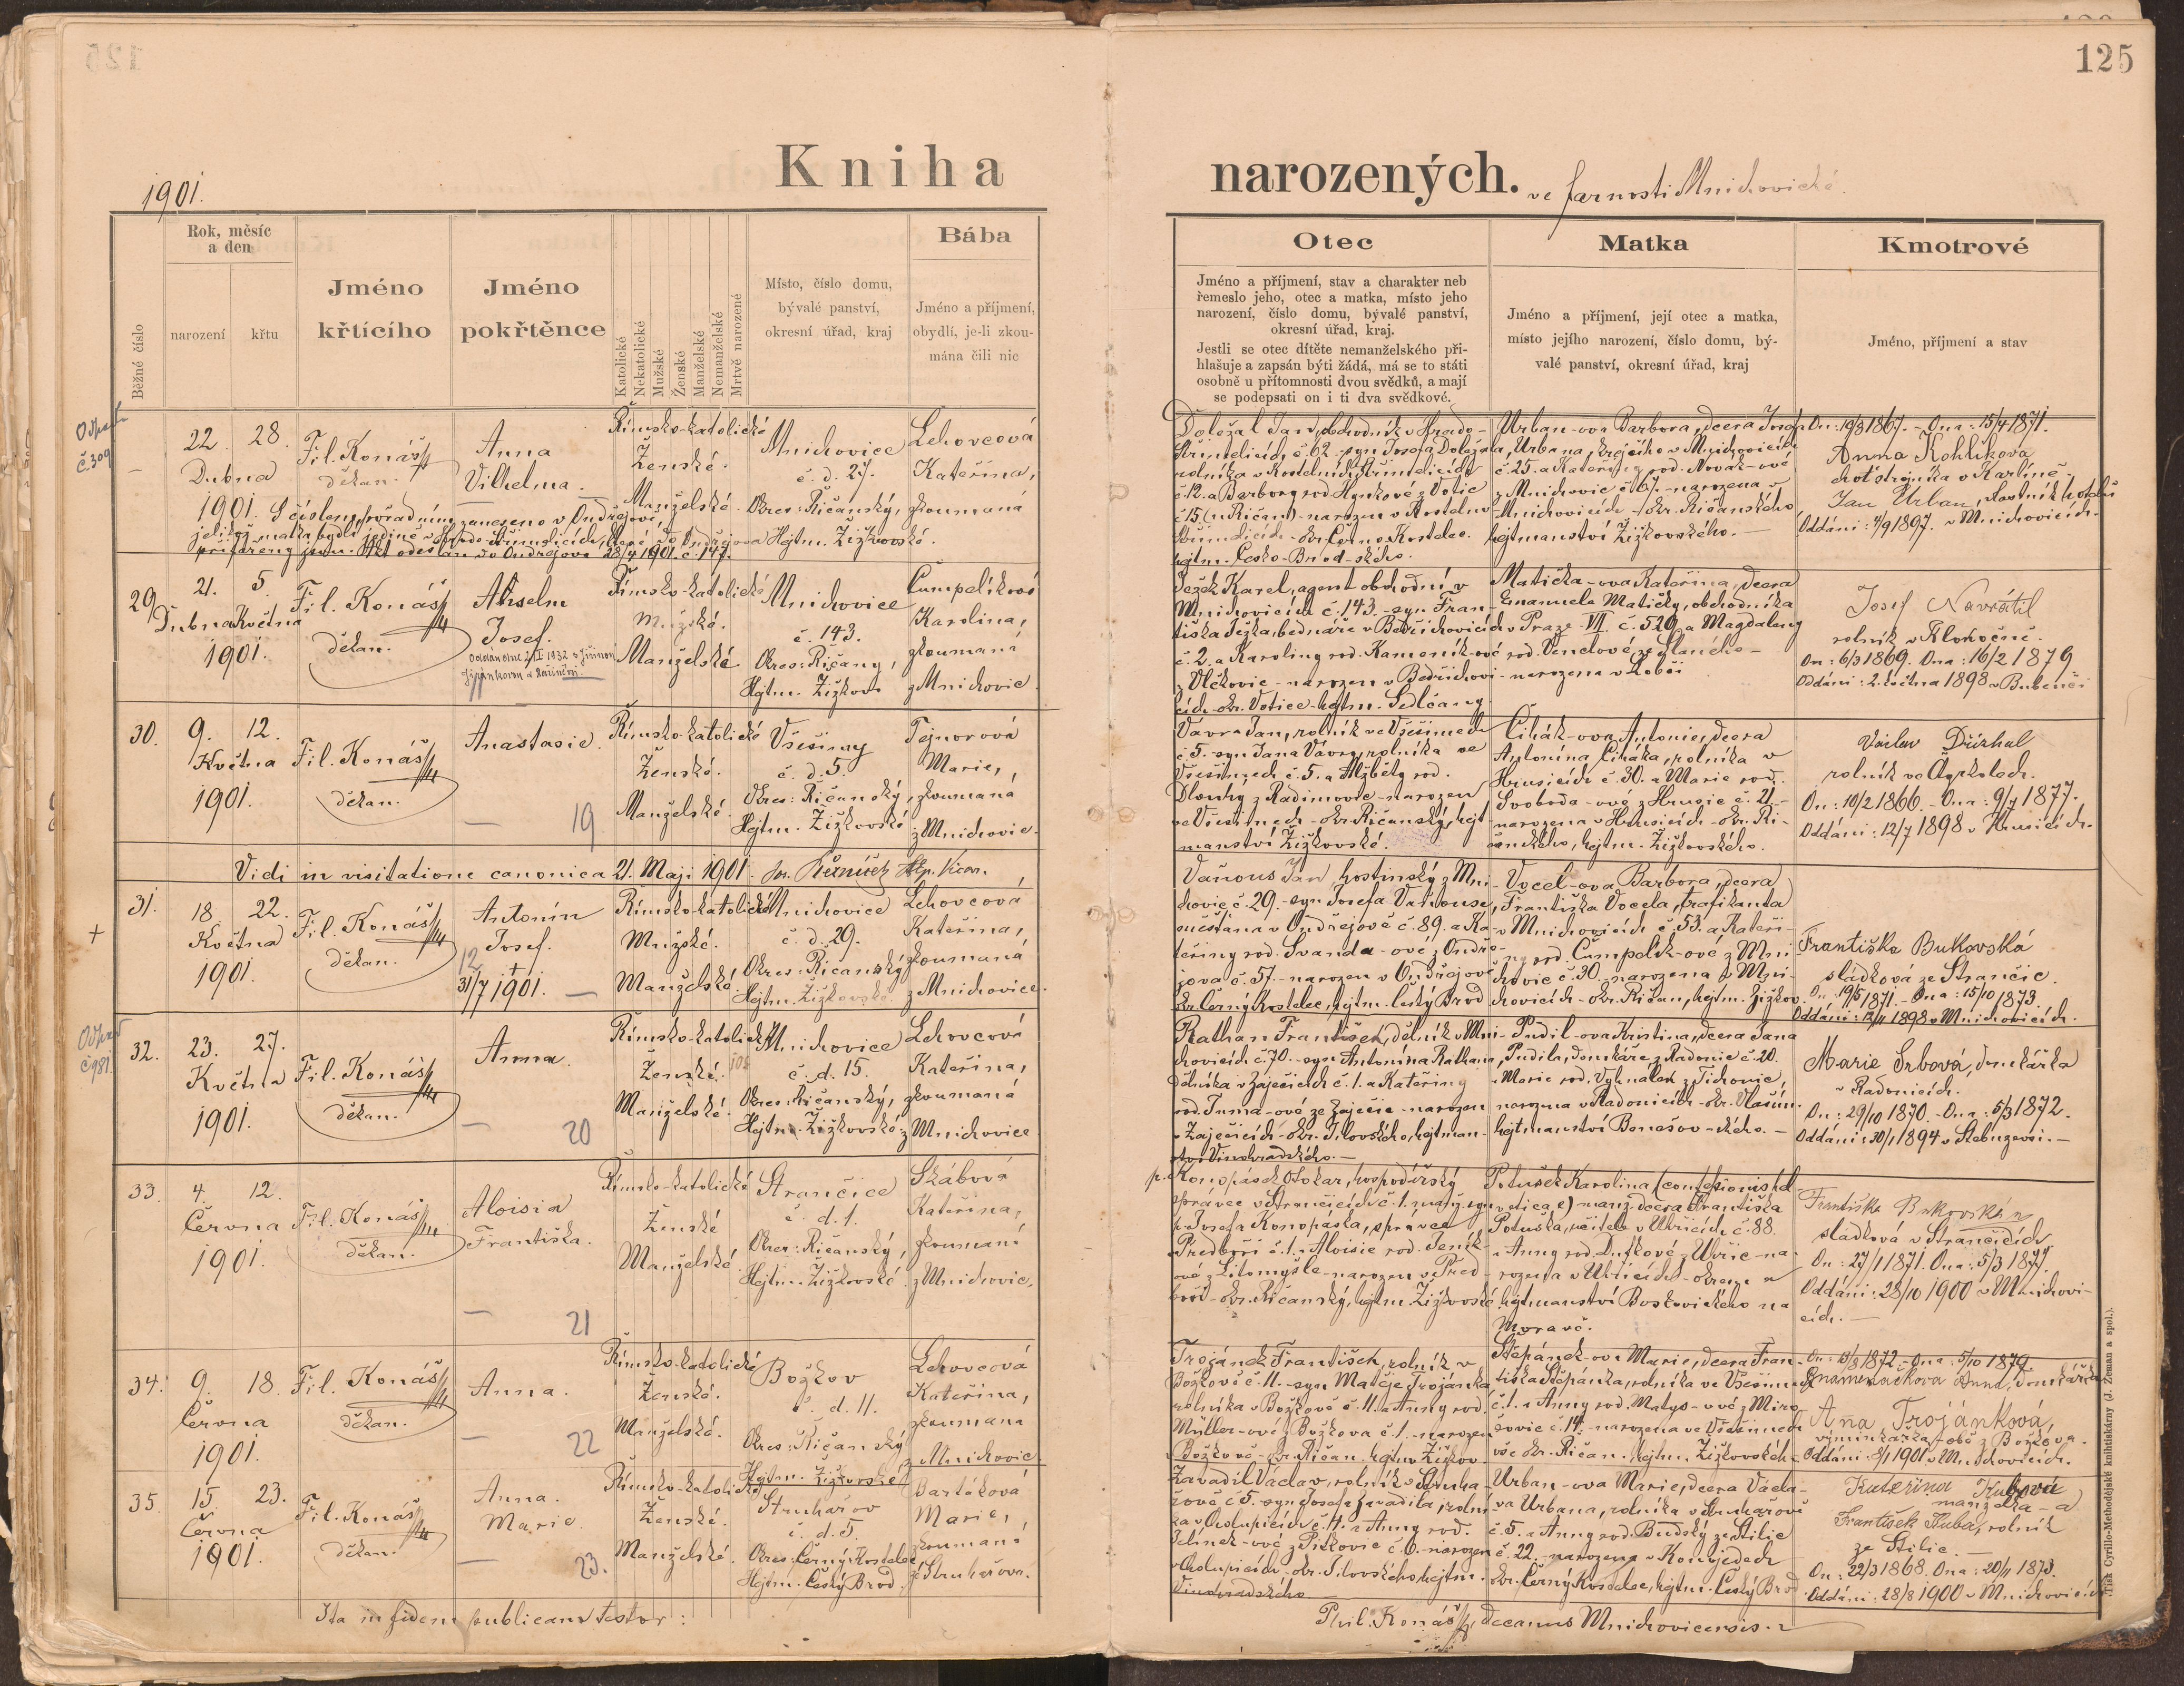 125
1901.
Kniha
narozených. ve farnosti Mnichovické.
Běžné číslo
Rok, měsíc a den
narození
křtu
Jméno křtícího
Jméno pokřtěnce
Katolické
Nekatolické
Mužské
Ženské
Manželské
Nemanželské
Mrtvě narozené
Místo, číslo domu,
bývalé panství,
okresní úřad, kraj
Bába
Jméno a příjmení,
obydlí, je-li zkou-
mána čili nic
Otec
Jméno a příjmení, stav a charakter neb
řemeslo jeho, otec a matka, místo jeho
narození, číslo domu, bývalé panství,
okresní úřad, kraj.
Jestli se otec dítěte nemanželského při-
hlašuje a zapsán býti žádá, má se to státi
osobně u přítomnosti dvou svědků, a mají
se podepsati on i ti dva svědkové.
Matka
Jméno a příjmení, její otec a matka,
místo jejího narození, číslo domu, bý-
valé panství, okresní úřad, kraj
Kmotrové
Jméno, příjmení a stav
č. 309
22. 28.
Dubna
1901.
Fil. Konáš
děkan.
Anna
Vilhelma
Římsko-katolické
Ženské.
Manželské.
Mnichovice
č. d. 27.
Okres: Říčanský,
Hejtm. Žižkovské.
Lehovcová
Kateřina,
zkoumaná
S číslem pořadním zaneseno v Ondřejově,
přifařeny jsou. Akt odeslán do Ondřejova 28/4 1901. č. 147.
Doležal Jan, obchodník v Hrado-
Střimelicích č. 62. syn Josefa Doležala,
rolníka v Kostelních Střimelicích
č. 12. a Barbory rod. Hynkové z Votic
č. 15. (u Říčan) - narozen v Kostelní
Střimelicích - okr. Černo-Kostelec.
hejtm. Česko-Brod-ského.
Urban-ova Barbora, dcera Josefa
Urbana, krejčího v Mnichovicích
č. 25. a Kateřiny rod. Novák-ové
z Mnichovic č. 67. - narozena v
Mnichovicích - okr. Říčanského,
hejtmanství Žižkovského.
On: 19/3 1867. - Ona: 15/4 1871.
Anna Kohlíkova
choť strojníka v Karlíně.
Jan Urban, vlastník hotelu
Oddáni: 4/9 1897. v Mnichovicích.
29.
21. 5.
Dubna Května
1901.
Fil. Konáš
děkan.
Anselm
Josef.
Římsko-katolické
Mužské.
Manželské
Mnichovice
č. 143.
Okres: Říčany,
Hejtm. Žižkov
Čumpelíková
Karolina,
zkoumaná
z Mnichovic.
Ježek Karel, agent obchodní v
Mnichovicích č. 143. - syn Fran-
tiška Ježka, bednáře v Bedřichovicích
č. 2. a Karoliny rod. Kameník-ové
z Vlčkovic - narozen v Bedřichovi-
cích okr. Votice - hejtm. Sedlčany
Matička-ova Kateřina, dcera
Emanuele Matičky, obchodníka
v Praze - VII. č. 529. a Magdaleny
rod. Venclové ze Slaného -
narozena v Robči
Josef Navrátil
rolník v Klokočné.
On: 6/3 1869. Ona: 16/2 1879
Oddáni: 2. května 1898 v Bubenči
30.
9. 12.
Května
1901.
Fil. Konáš
děkan.
Anastasie.
19
Římsko-katolické
Ženské.
Manželské.
Všešimy
č. d. 5.
Okres: Říčanský,
Hejtm. Žižkovské
Tejnorová
Marie,
zkoumaná
z Mnichovic.
Vávra Jan, rolník ve Všešimech
č. 5. - syn Jana Vávry, rolníka ve
Všešimech č. 5. a Alžběty rod.
Dlouhý z Radimovic - narozen
ve Všešimech - okr. Říčanský, hejt-
manství Žižkovské.
Čihák-ova Antonie, dcera
Antonína Čiháka, rolníka v
Hrusicích č. 30. a Marie rod.
Svoboda-ové z Hrusic č. 21. -
narozena v Hrusicích - okr. Ří-
čanského, hejtm. Žižkovského.
Václav Důzhal
rolník ve
On: 10/2 1866. - Ona: 9/7 1877.
Oddáni: 12/7 1898 v Hrusicích.
Vidi in visitatione canonica 21. Maji 1901.
31.
+
18. 22.
Května
1901.
Fil. Konáš
děkan.
Antonín
Josef.
12
+
31/7 1901.
Římsko-katolické
Mužské.
Manželské.
Mnichovice
č. d. 29.
Okres. Říčanský
Hejtm. Žižkovské.
Lehovcová
Kateřina,
zkoumaná
z Mnichovice.
Vaňous Jan hostinský z Mni-
chovic č. 29. - syn Josefa Vaňouse,
měšťana v Ondřejově č. 89. a Ka-
teřiny rod. Švanda-ové z Ondře-
jova č. 57. - narozen v Ondřejově
okr. Černý Kostelec, hejtm. Český Brod
Vocel-ova Barbora, dcera
Františka Vocela, trafikanta
v Mnichovicích č. 53. a Kateři-
ny rod. Čumpelík-ové z Mni-
chovic č. 30. - narozena v Mni-
chovicích - okr. Říčan, hejtm. Žižkov.
Františka Bukovská
sládková ze Strančic.
On: 19/5 1871. - Ona: 15/10 1873.
Oddáni: 12/11 1898 v Mnichovicích.
č 981.
32.
23. 27.
Května
1901.
Fil. Konáš
děkan.
Anna.
20
Římsko-katolické
Ženské.
Manželské.
Mnichovice
č. d. 15.
Okres: Říčanský,
Hejtm. Žižkovské
Lehovcová
Kateřina,
zkoumaná
z Mnichovice
Rathan František, dělník v Mni-
chovicích č. 70. - syn Antonína Rathana,
dělníka v Zaječicích č. 1. a Kateřiny
rod. Tuma-ové ze Zaječic - narozen
v Zaječicích - okr. Jílovského, hejtman-
ství Vinohradského. -
Pudil-ova Kristina, dcera Jana
Pudila, domkáře z Radonic č. 20.
a Marie rod. Vyhnálek z Tichonic,
narozena v Radonicích - okr. Vlašim.
hejtmanství Benešov-ského. -
Marie Srbová, domkářka
v Radonicích.
On: 29/10 1870. - Ona: 5/3 1872.
Oddáni: 30/1 1894 v
33.
4. 12.
Června
1901.
Fil. Konáš
děkan.
Aloisia
Františka.
21
Římsko-katolické
Ženské
Manželské.
Strančice
č. d. 1.
Okres: Říčanský,
Hejtm. Žižkovské.
Skábová
Kateřina,
zkoumaná
z Mnichovic.
Konopásek Otokar, hospodářský
správce v Strančicích č. 1. manž. syn
Josefa Konopáska, správce
v Předboři č. 1. a Aloisie rod. Jeník-
ové z Litomyšle - narozen v Před-
boři - okr. Říčanský, hejtm. Žižkovské
Potušek Karolina (confessionis hel-
veticae) manž. dcera Františka
Potuška, učitele v Ubřicích č. 88.
a Anny rod. Dufkové z Ubřic - na-
rozena v Ubřicích - okresu a
hejtmanství Boskovického na
Moravě.
Františka Bukovská
sládková v Strančicích
On: 27/1 1871. Ona: 5/3 1877.
Oddáni: 28/10 1900 v Mnichovi-
cích. -
34.
9. 18.
Června
1901.
Fil. Konáš
děkan.
Anna.
22
Římsko-katolické
Ženské.
Manželské.
Božkov
č. d. 11.
Okres: Říčanský
Hejtm. Žižkovské
Lehovcová
Kateřina,
zkoumaná
z Mnichovic
Trojánek František, rolník v
Božkově č. 11. - syn Matěje Trojánka,
rolníka v Božkově č. 11. a Anny rod.
Müller-ové z Božkova č. 1. - narozen
v Božkově - okr. Říčan, hejtm. Žižkov
Štěpánek-ova Marie, dcera Fran-
tiška Štěpánka, rolníka ve Všešimech
č. 1. a Anny rod. Matys-ové z Miro-
šovic č. 14. - narozena ve Všešimech
okr. Říčan. hejtm. Žižkovských -
On: 15/8 1872. - Ona: 5/10 1879.
Znamenáčkova Anna, domkářka
Aña Trojánková,
výminkářka - obě z Božkova.
Oddáni: 8/1 1901 v Mnichovicích.
35.
15. 23.
Června
1901.
Fil. Konáš
děkan.
Anna.
Marie
23.
Římsko-katolické
Ženské.
Manželské.
Struhařov
č. d. 5.
Okres: Černý Kostelec
Hejtm. Český Brod.
Bartáková
Marie,
zkoumaná
ze Struhařova.
Zavadil Václav, rolník v Struha-
řově č. 5. - syn Josefa Zavadila, rolní-
ka v Cholupicích č. 4. a Anny rod.
Jelínek-ové z Pitkovic č. 6. - narozen
v Cholupicích - okr. Jílovského, hejtm.
Vinohradského
Urban-ova Marie, dcera Václa-
va Urbana, rolníka v Struhařově
č. 5. a Anny rod. Budský ze Štilic
č. 22. - narozena v Konojedech
okr. Černý Kostelec, hejtm. Český Brod
Kateřina Kubová
manželka - a
František Kuba, rolník
ze Štilic.
On: 22/3 1868. Ona: 20/11 1873.
Oddáni: 28/8 1900 v Mnichovicích
Ita in fidem publicam testor:
Phil. Konáš, decanus Mnichovicensis.
Tisk Cyrillo-Methodějské knihtiskárny (J. Zeman a spol.).